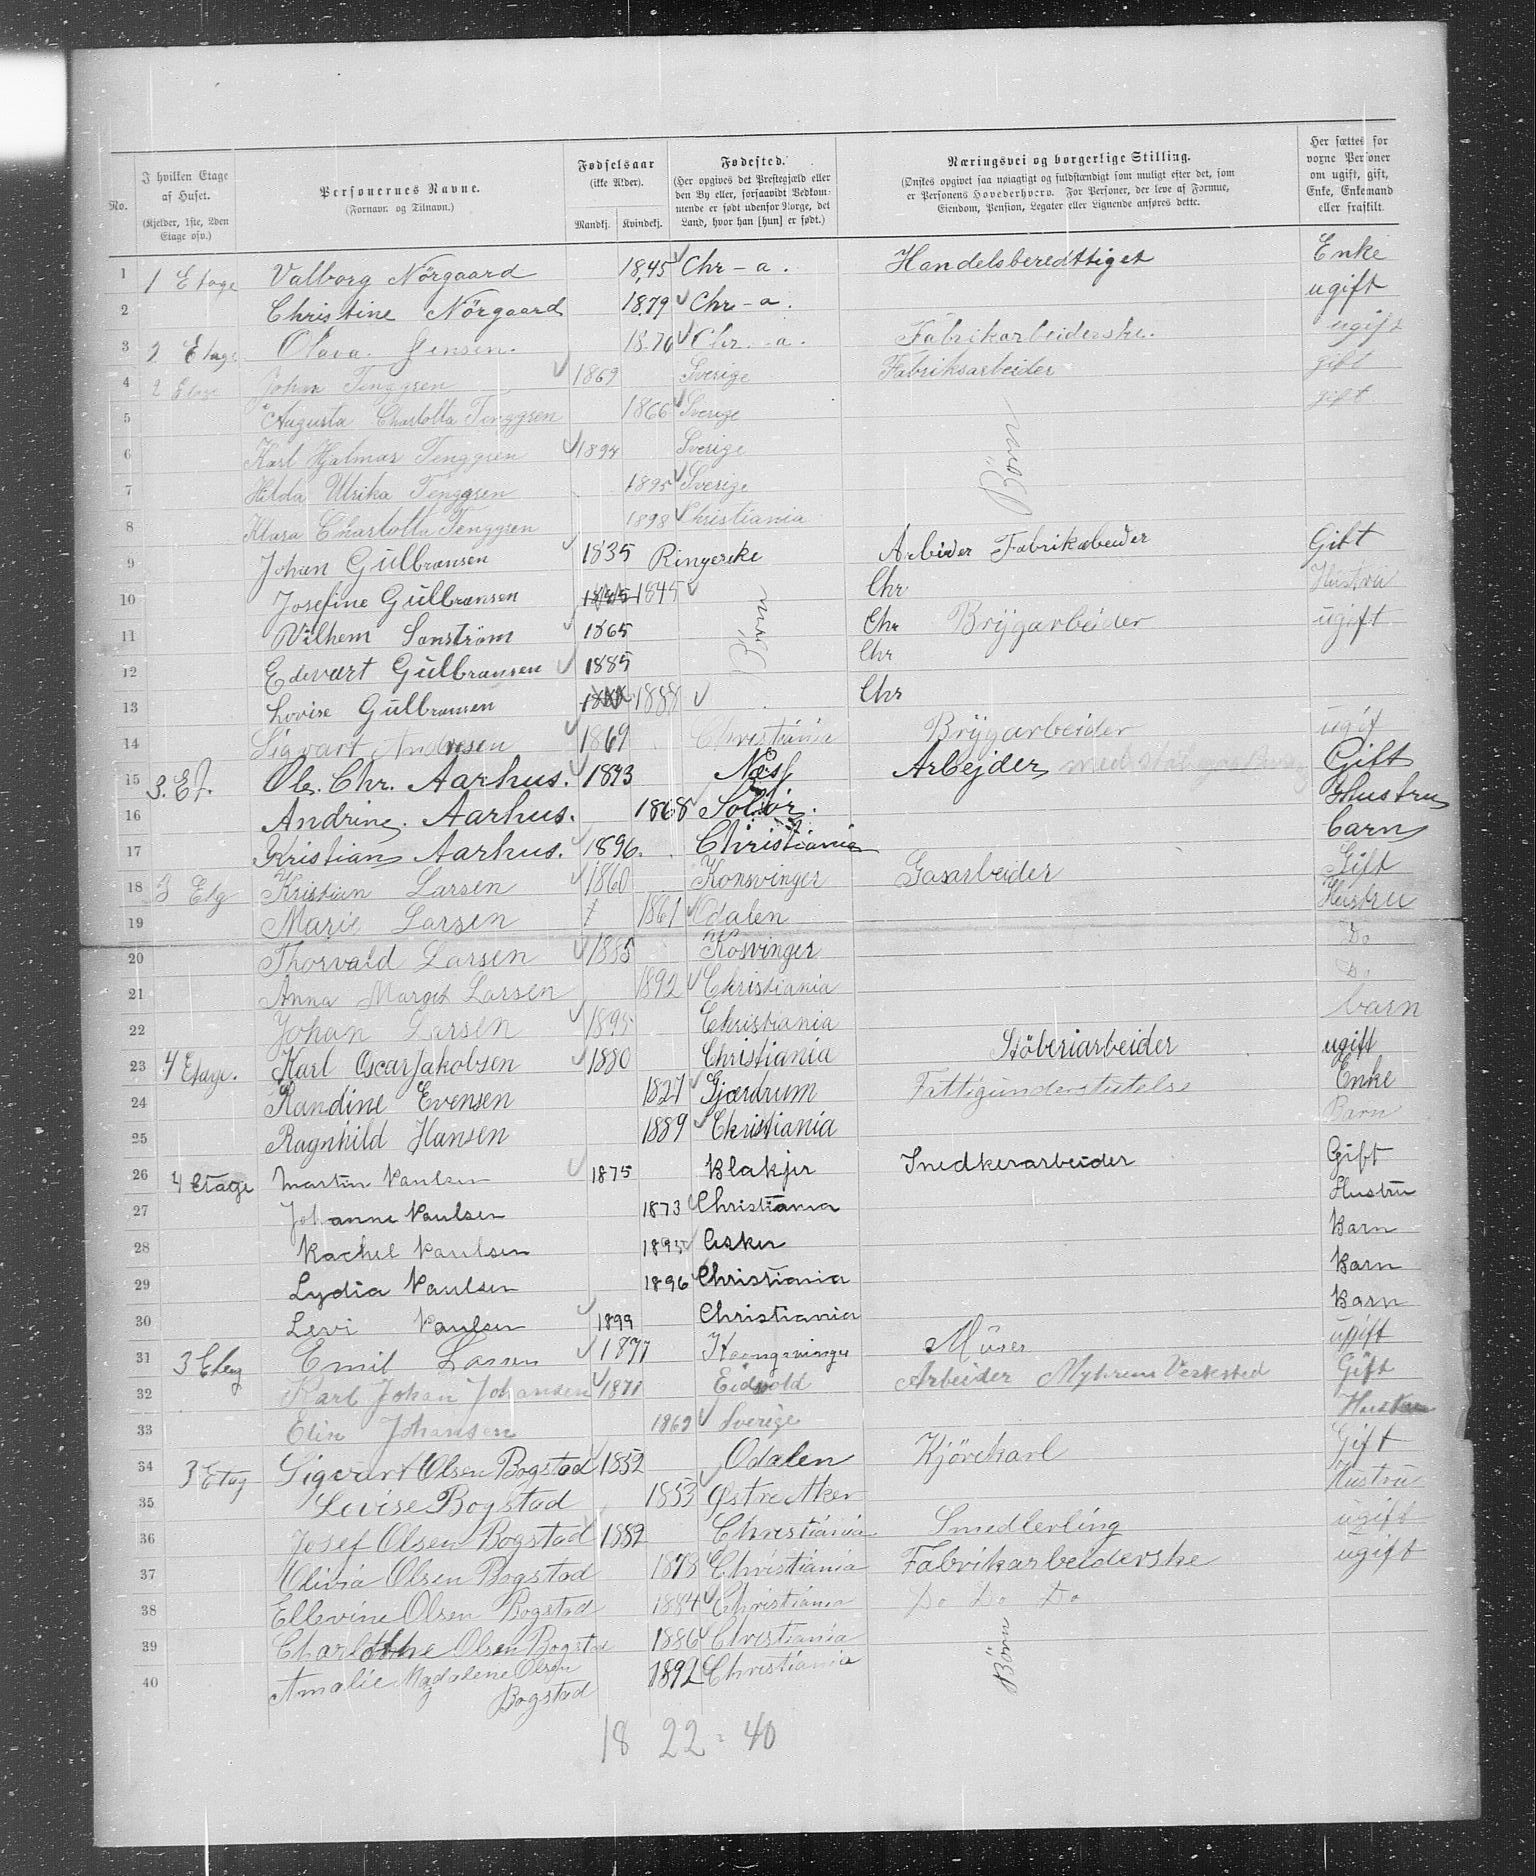 No. I hvilken Etage af Huset. (Kjelder, 1ste, 2den Etage osv.) Personernes Navne. (Fornavn og Tilnavn.) Fødselsaar (ikke Alder). Mandkj. Kvindekj. Fødested. (Her opgives det Prestegjæld eller den By eller, forsaavidt Vedkommende er født udenfor Norge, det Land, hvor han [hun] er født.) Næringsvei og borgerlige Stilling. (Ønskes opgivet saa nøiagtigt og fuldstændigt som muligt efter det, som er Personens Hovederhverv. For Personer, der leve af Formue, Eiendom, Pension, Legater eller Lignende anføres dette. Her sættes for voxne Personer om ugift, gift, Enke, Enkemand eller fraskilt.
1 1 Etage Valborg Nörgaard 1845 Chr-a. Handelsberedttiget Enke
2 Christine Nörgaard 1879 Chr-a. ugift
3 2 Etage Olava Jensen. 1876 Chr.-a. Fabrikarbeiderske. ugift
4 2 Etage John Tenggren 1869 Sverige Fabriksarbeider gift
5 Augusta Charlotta Tenggren 1866 Sverige gift
6 Karl Hjalmar Tenggren 1894 Sverige Börn
7 Hilda Ulrika Tenggren 1895 Sverige
8 Klara Charlotta Tenggren 1898 Christiania
9 Johan Gulbransen 1835 Ringerike Arbider Fabrikabeider Gift
10 Josefine Gulbransen 1845 Chr Hustru
11 Vilhem Sanström 1865 Chr Brygarbeider ugift
12 Edevart Gulbransen 1885 Börn Chr
13 Lovise Gulbransen 1888 Chr
14 Sigvart Andresen 1869 Christiania Brygarbeider ugif
15 3. Et. Ole. Chr. Aarhus. 1873 Næs Arbejder Gift
16 Andrine. Aarhus. 1868 Solør. Hustru
17 Kristian Aarhus. 1896. Christiania barn
18 3 Etg Kristian Larsen 1860 Konsvinger Gasarbeider Gift
19 Marie Larsen 1861 Odalen Hustru
20 Thorvald Larsen 1885 Kosvinger Do
21 Anna Margit Larsen 1892 Christiania Do
22 Johan Larsen 1895 Christiania barn
23 4 Etage. Karl Oscar Jakobsen 1880 Christiania Støberiarbeider ugift
24 Randine Evensen 1827 Gjærdrum Fattigunderstøtelse Enke
25 Ragnhild Hansen 1889 Christiania Barn
26 4 Etage Martin Paulsen 1875 Blakjer Snedkerarbeider Gift
27 Johanne Paulsen 1873 Christiania Hustru
28 Rachel Paulsen 1895 Asker Barn
29 Lydia Paulsen 1896 Christiania Barn
30 Levi Paulsen 1899 Christiania Barn
31 3 Etag Emil Larsen 1877 Kongsvinger Murer ugift
32 Karl Johan Johansen 1871 Eidsvold Arbeider Myhrens Verksted Gift
33 Elin Johansen 1869 Sverige Hustru
34 3 Etag Sigvart Olsen Bogstad 1852 Odalen Kjörekarl Gift
35 Lovise Bogstad 1853 Østre Aker Hustru
36 Josef Olsen Bogstad 1882 Christiania Smedlerling ugift
37 Olivia Olsen Bogstad 1878 Christiania Fabrikarbeiderske ugift
38 Ellevine Olsen Bogstad 1884 Christiania Do Do Do
39 Charlotthe Olsen Bogstad 1886 Christiania Börn
40 Amalie Magdalene Olsen 1892 Christiania
Bogstad
18 22 = 40